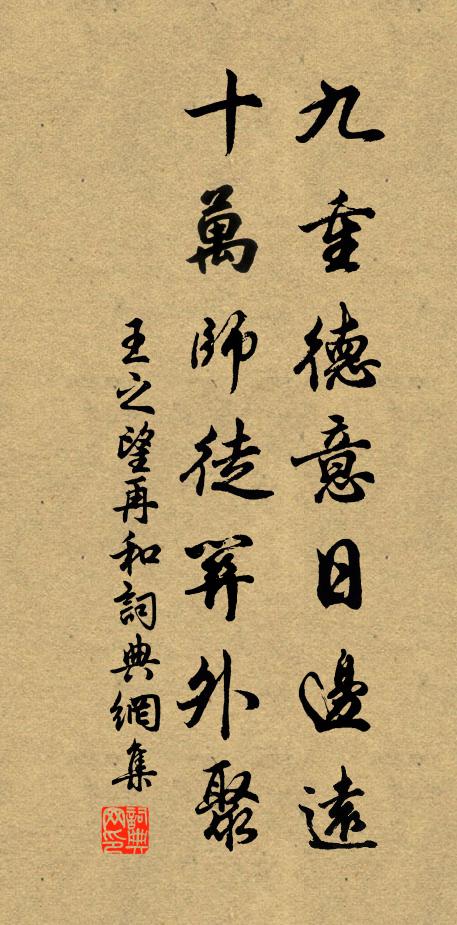 九重德意日邊遠
十萬師徒關外聚
王之望再和詞典網集
詞典網印